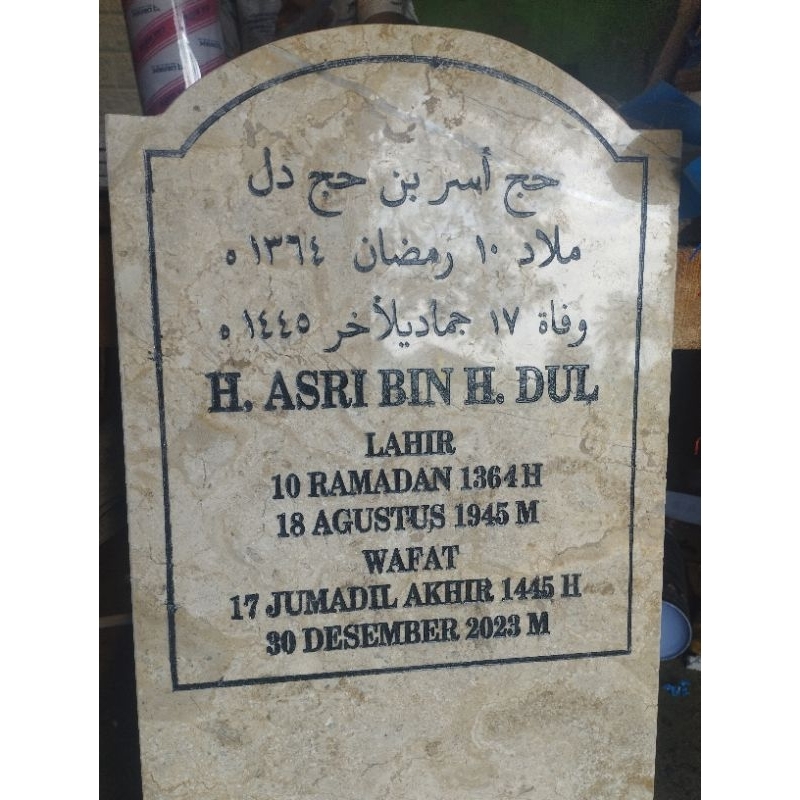 حج أسر بن حج دل
ملاد ١٠ رمضان ١٣٦٤ ه
وفاة ١٧ جماديلأخر ١٤٤٥ ه
H. ASRI BIN H. DUL
LAHIR
10 RAMADAN 1364 H
18 AGUSTUS 1945 M
WAFAT
17 JUMADIL AKHIR 1445 H
30 DESEMBER 2023 M